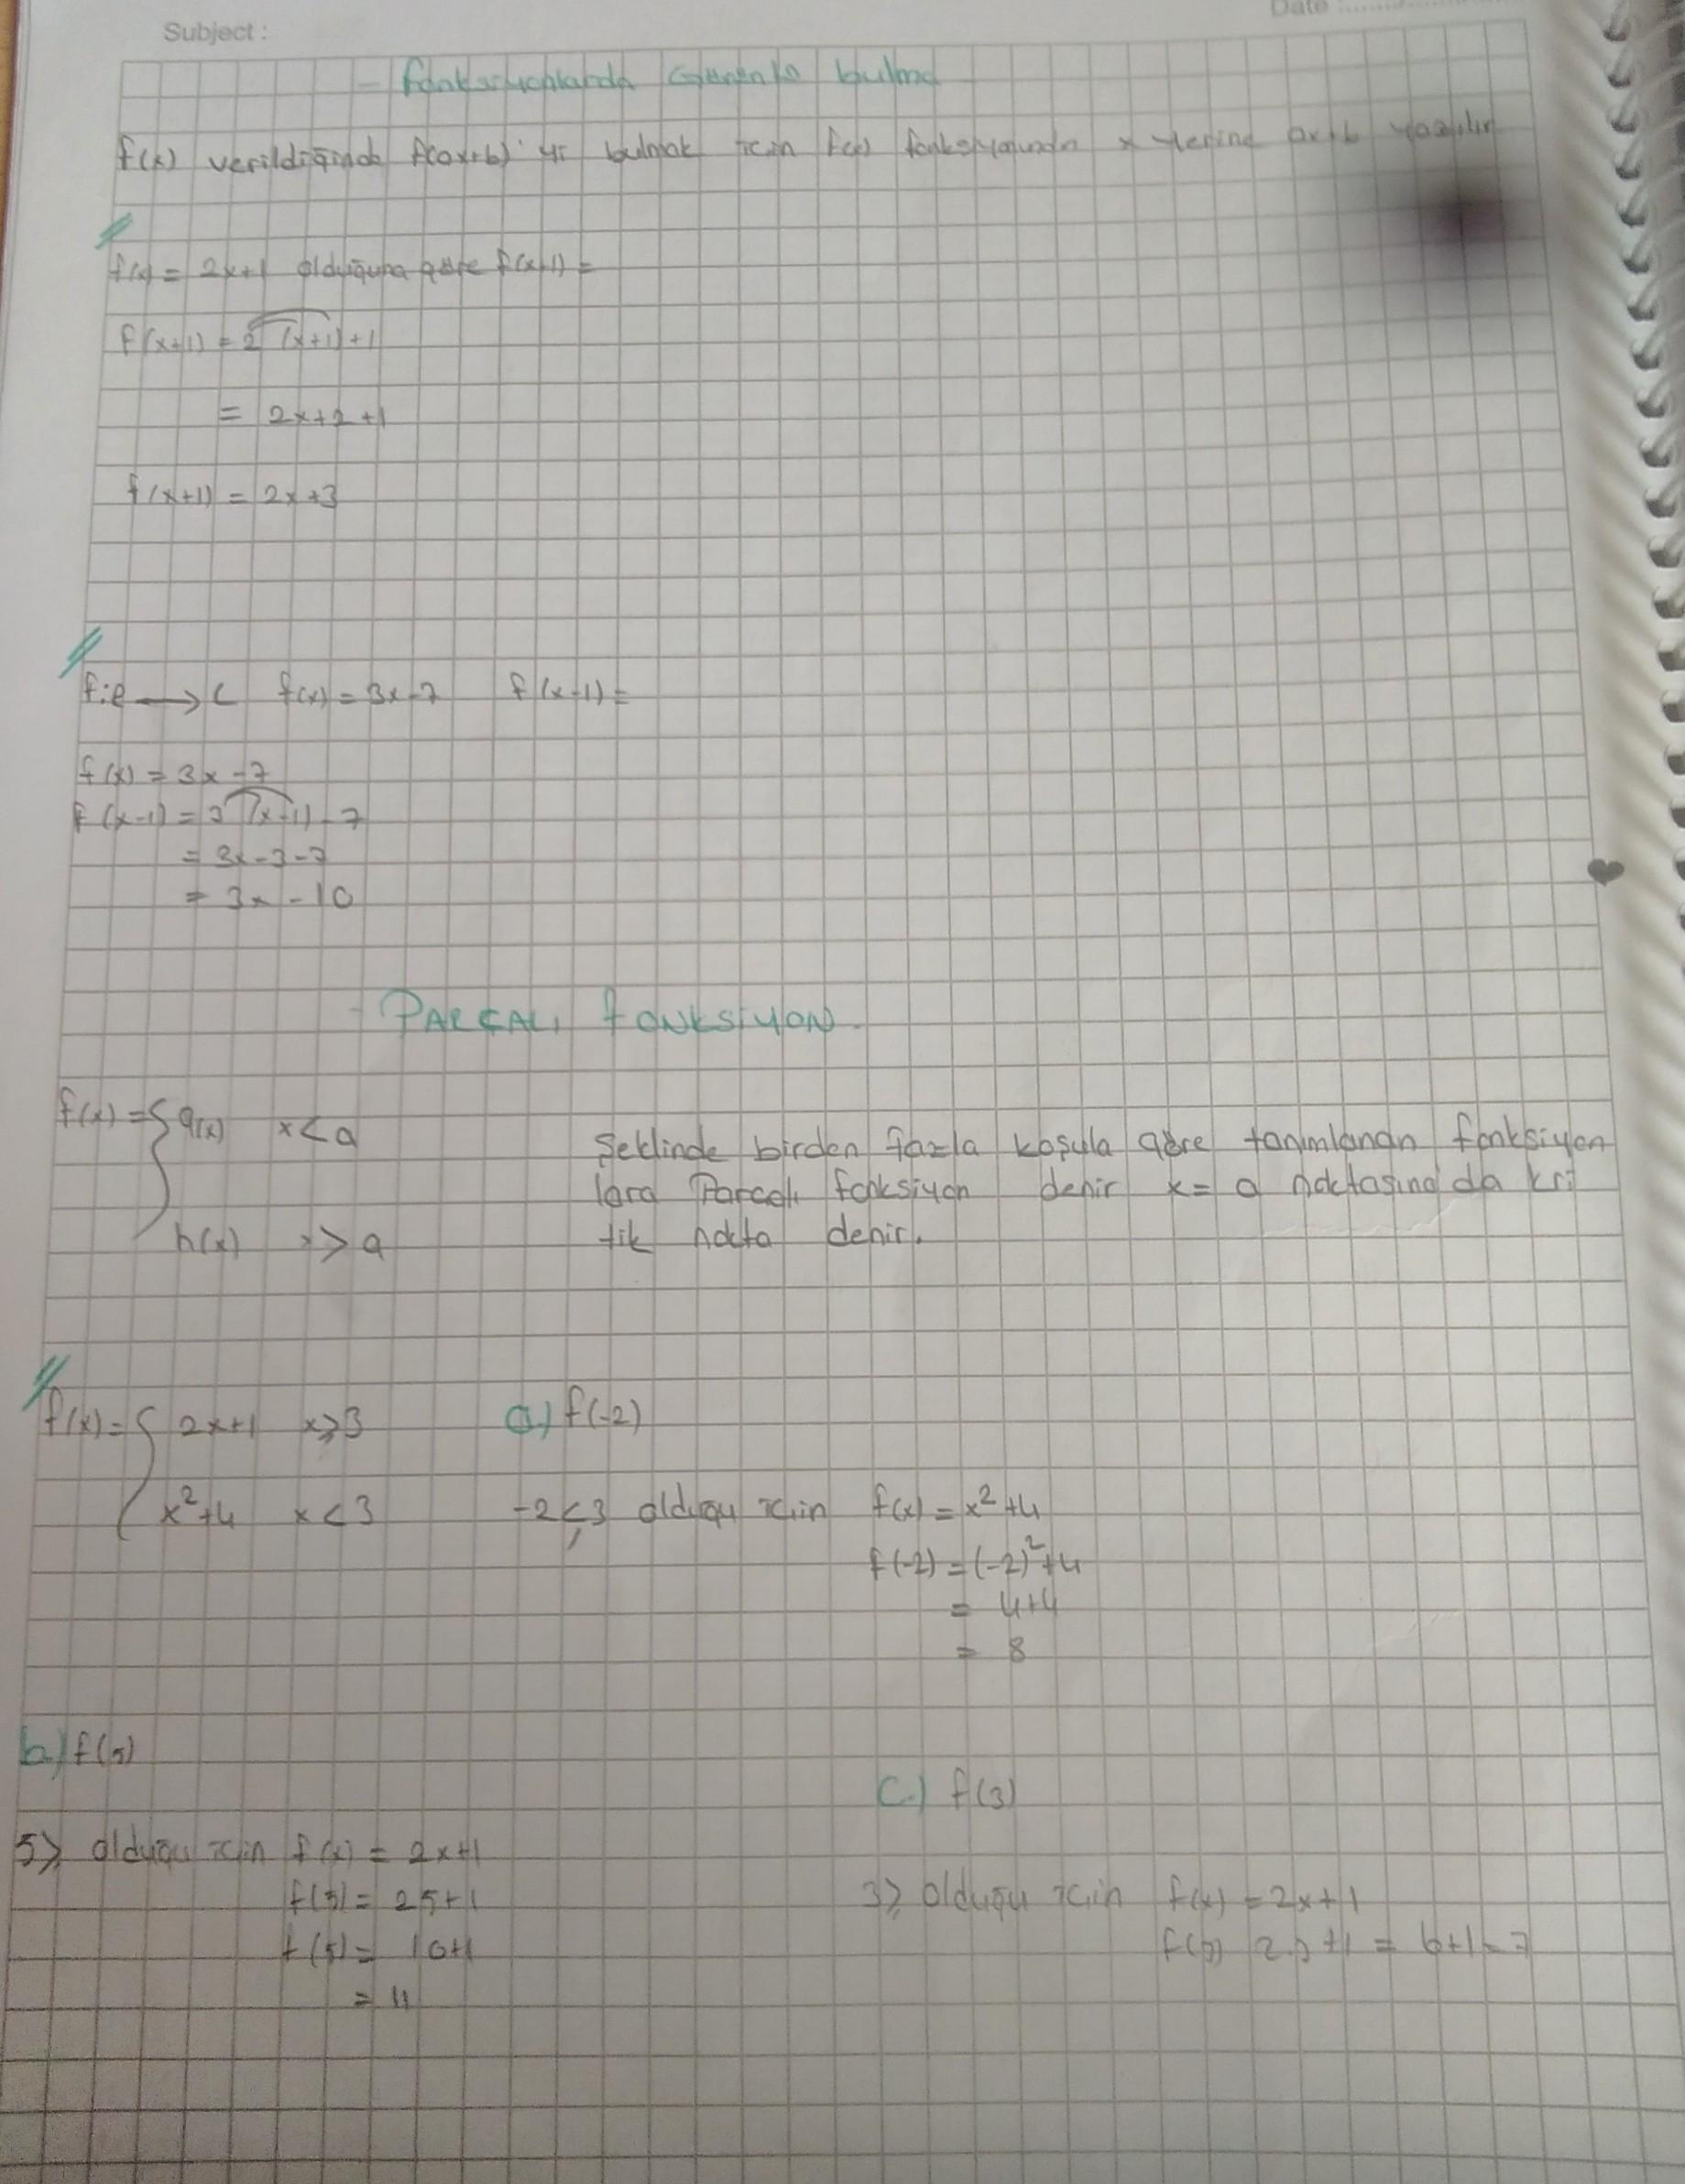 Subject :
Date :
- Fonksiyonlarda Görüntü bulma
f(x) verildiğinde f(ax+b)' yi bulmak için f(x) fonksiyonunda x yerine ax+b yazılır
f(x) = 2x+1 olduğuna göre f(x+1) =
f(x+1) = 2 (x+1)+1
= 2x+2+1
f(x+1) = 2x+3
f(x) = 3x-7 f(x-1) =
f(x) = 3x-7
f(x-1) = 3 (x-1)-7
= 3x-3-7
= 3x-10
- PARÇALI fONKSiYON
f(x) = { g(x) x<a
Şeklinde birden fazla koşula göre tanımlanan fonksiyon
lara Parçalı fonksiyon denir x= a noktasına da kri
h(x) x>a tik nokta denir.
f(x) = { 2x+1 x≥3 a.) f(-2)
x²+4 x<3 -2<3 olduğu için f(x) = x²+4
f(-2) = (-2)²+4
= 4+4
= 8
b.) f(5)
C.) f(3)
5≥ olduğu için f(x) = 2x+1
f(5) = 25+1
3≥ olduğu için f(x) = 2x+1
f(5) = 10+1
f(3) 2.3+1 = 6+1=7
= 11